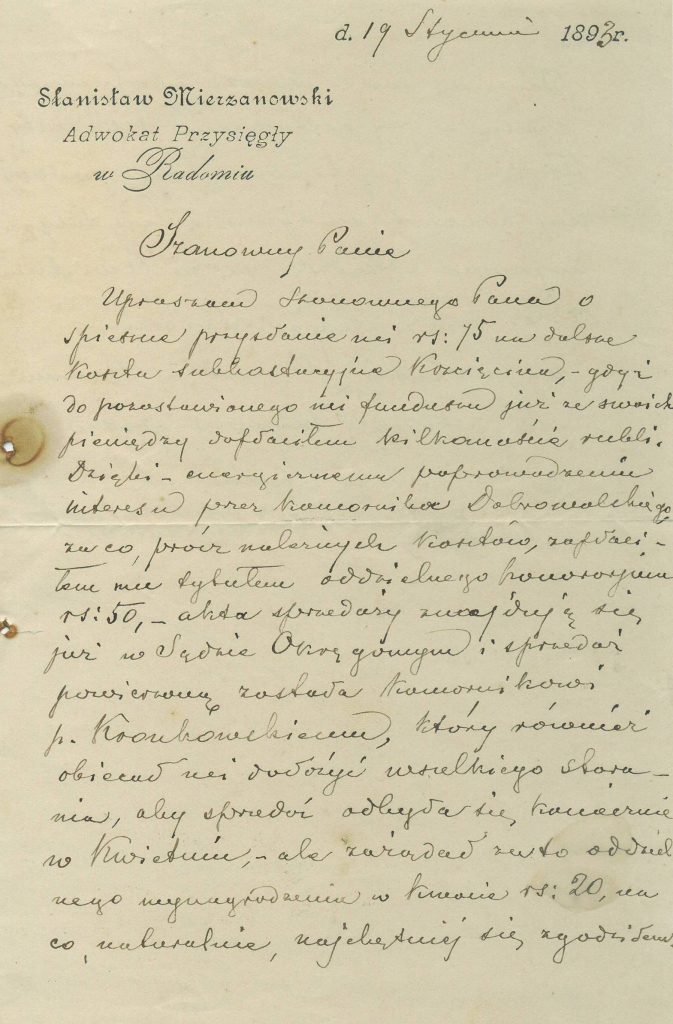 d. 19 Stycznia 1893r.
Stanisław Mierzanowski
Adwokat Przysięgły
w Radomiu
Szanowny Panie
Upraszam szanownego Pana o
spieszne przysłanie mi rs: 75 na dalsze
koszta subhastacyjne Kościęcina, - gdyż
do pozostawionego mi funduszu już ze swoich
pieniędzy dopłaciłem kilkanaście rubli.
Dzięki - energicznemu poprowadzeniu
interesu przez komornika Dobrowolskiego,
za co, prócz należnych kosztów, zapłaci-
łem mu tytułem oddzielnego honorarjum
rs: 50, - akta sprzedaży znajdują się
już w Sądzie Okręgowym i sprzedaż
powierzoną została komornikowi
p. Kronkowskiemu, który również
obiecał mi dołożyć wszelkiego stara-
nia, aby sprzedaż odbyła się koniecznie
w Kwietniu, - ale zażądał za to oddziel
nego wynagrodzenia w kwocie rs: 20, na
co, naturalnie, najchętniej się zgodziłem.